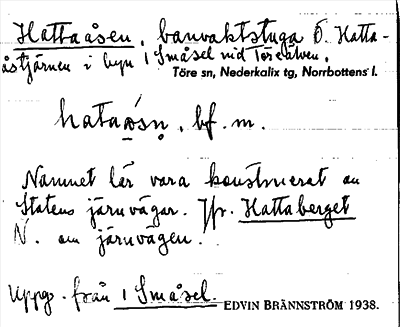 Hattaåsen, banvaktstuga Ö. Hatta-
åstjärnen i byn 1 Småsel vid Töreälven.
Töre sn, Nederkalix tg, Norrbottens l.
bf. m.
Namnet lär vara konstruerat av
Statens järnvägar. Jfr. Hattaberget
N. om järnvägen.
Uppg. från 1 Småsel.
EDVIN BRÄNNSTRÖM 1938.